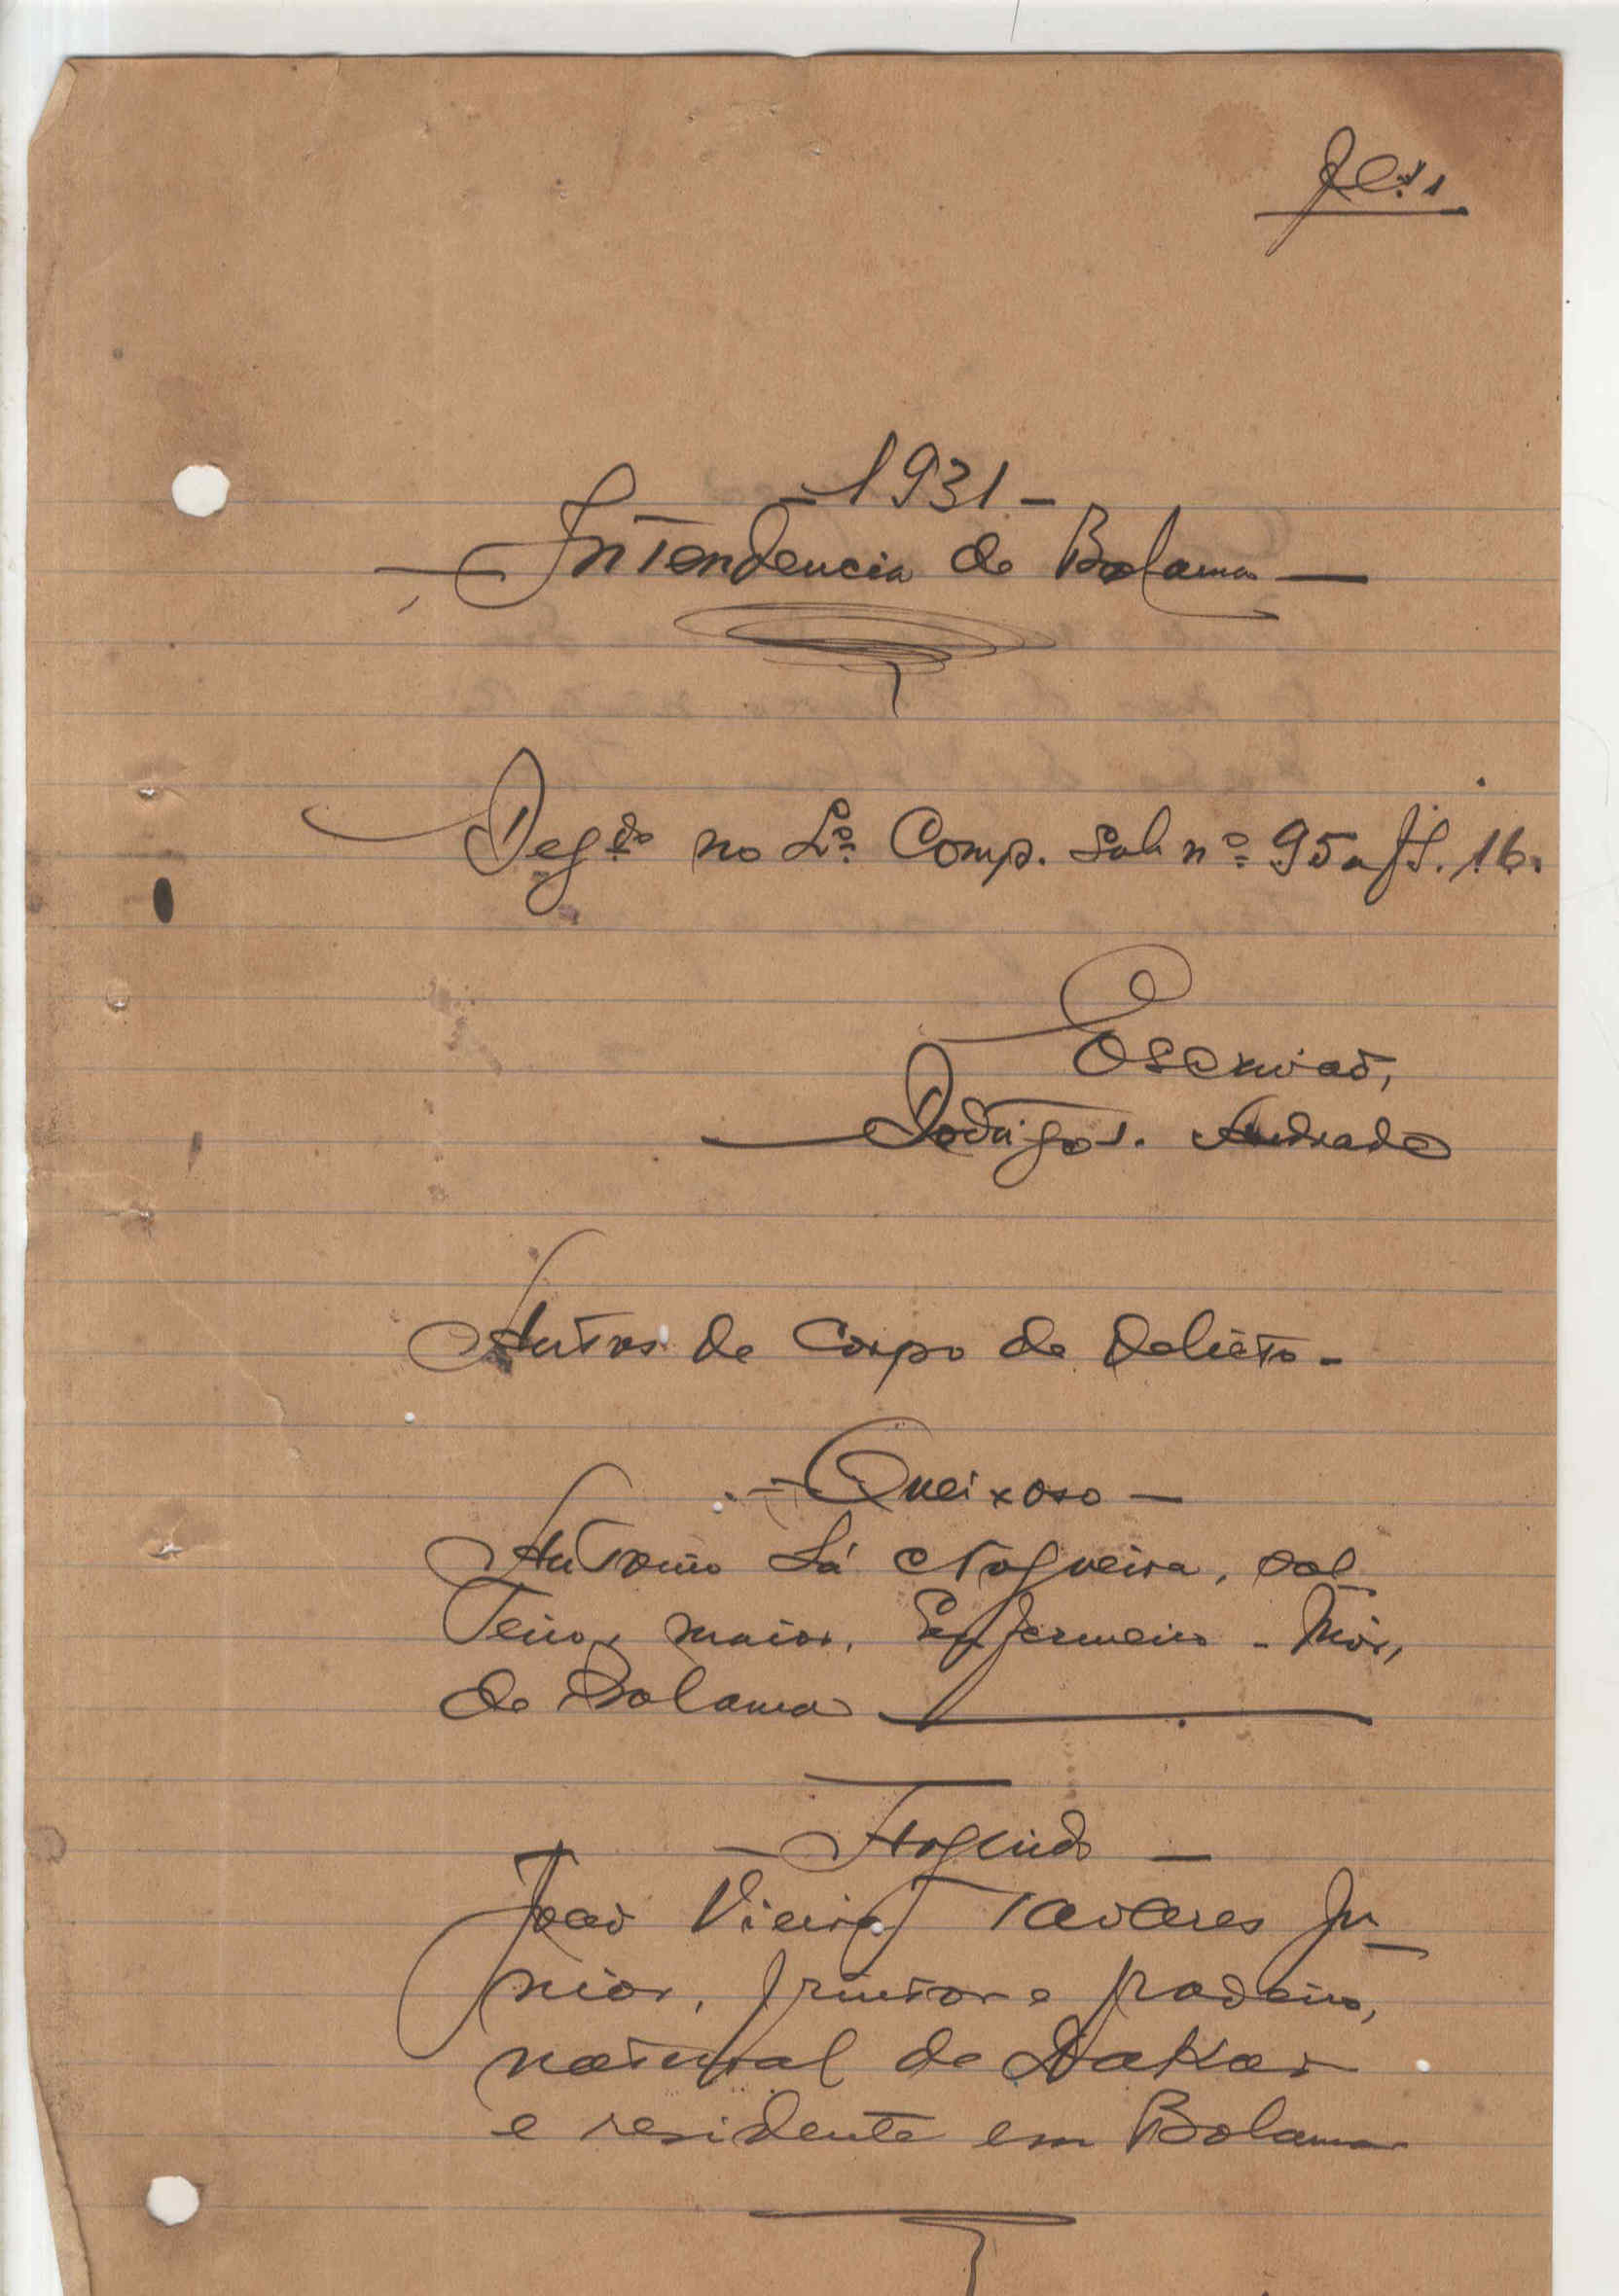 Fls. 1
- 1931 -
- Intendencia de Bolama -
Reg.do no L.º Comp. sob n.º 95 a fl. 16.
O Escrivão,
Rodrigo J. Andrade
Autos de Corpo de delicto -
- Queixoso -
Antonio Sá Nogueira, sol-
teiro, maior, Enfermeiro - Mór,
de Bolama
- Arguido -
João Vieira Tavares Ju-
nior, pintor e padeiro,
natural de Dakar
e residente em Bolama